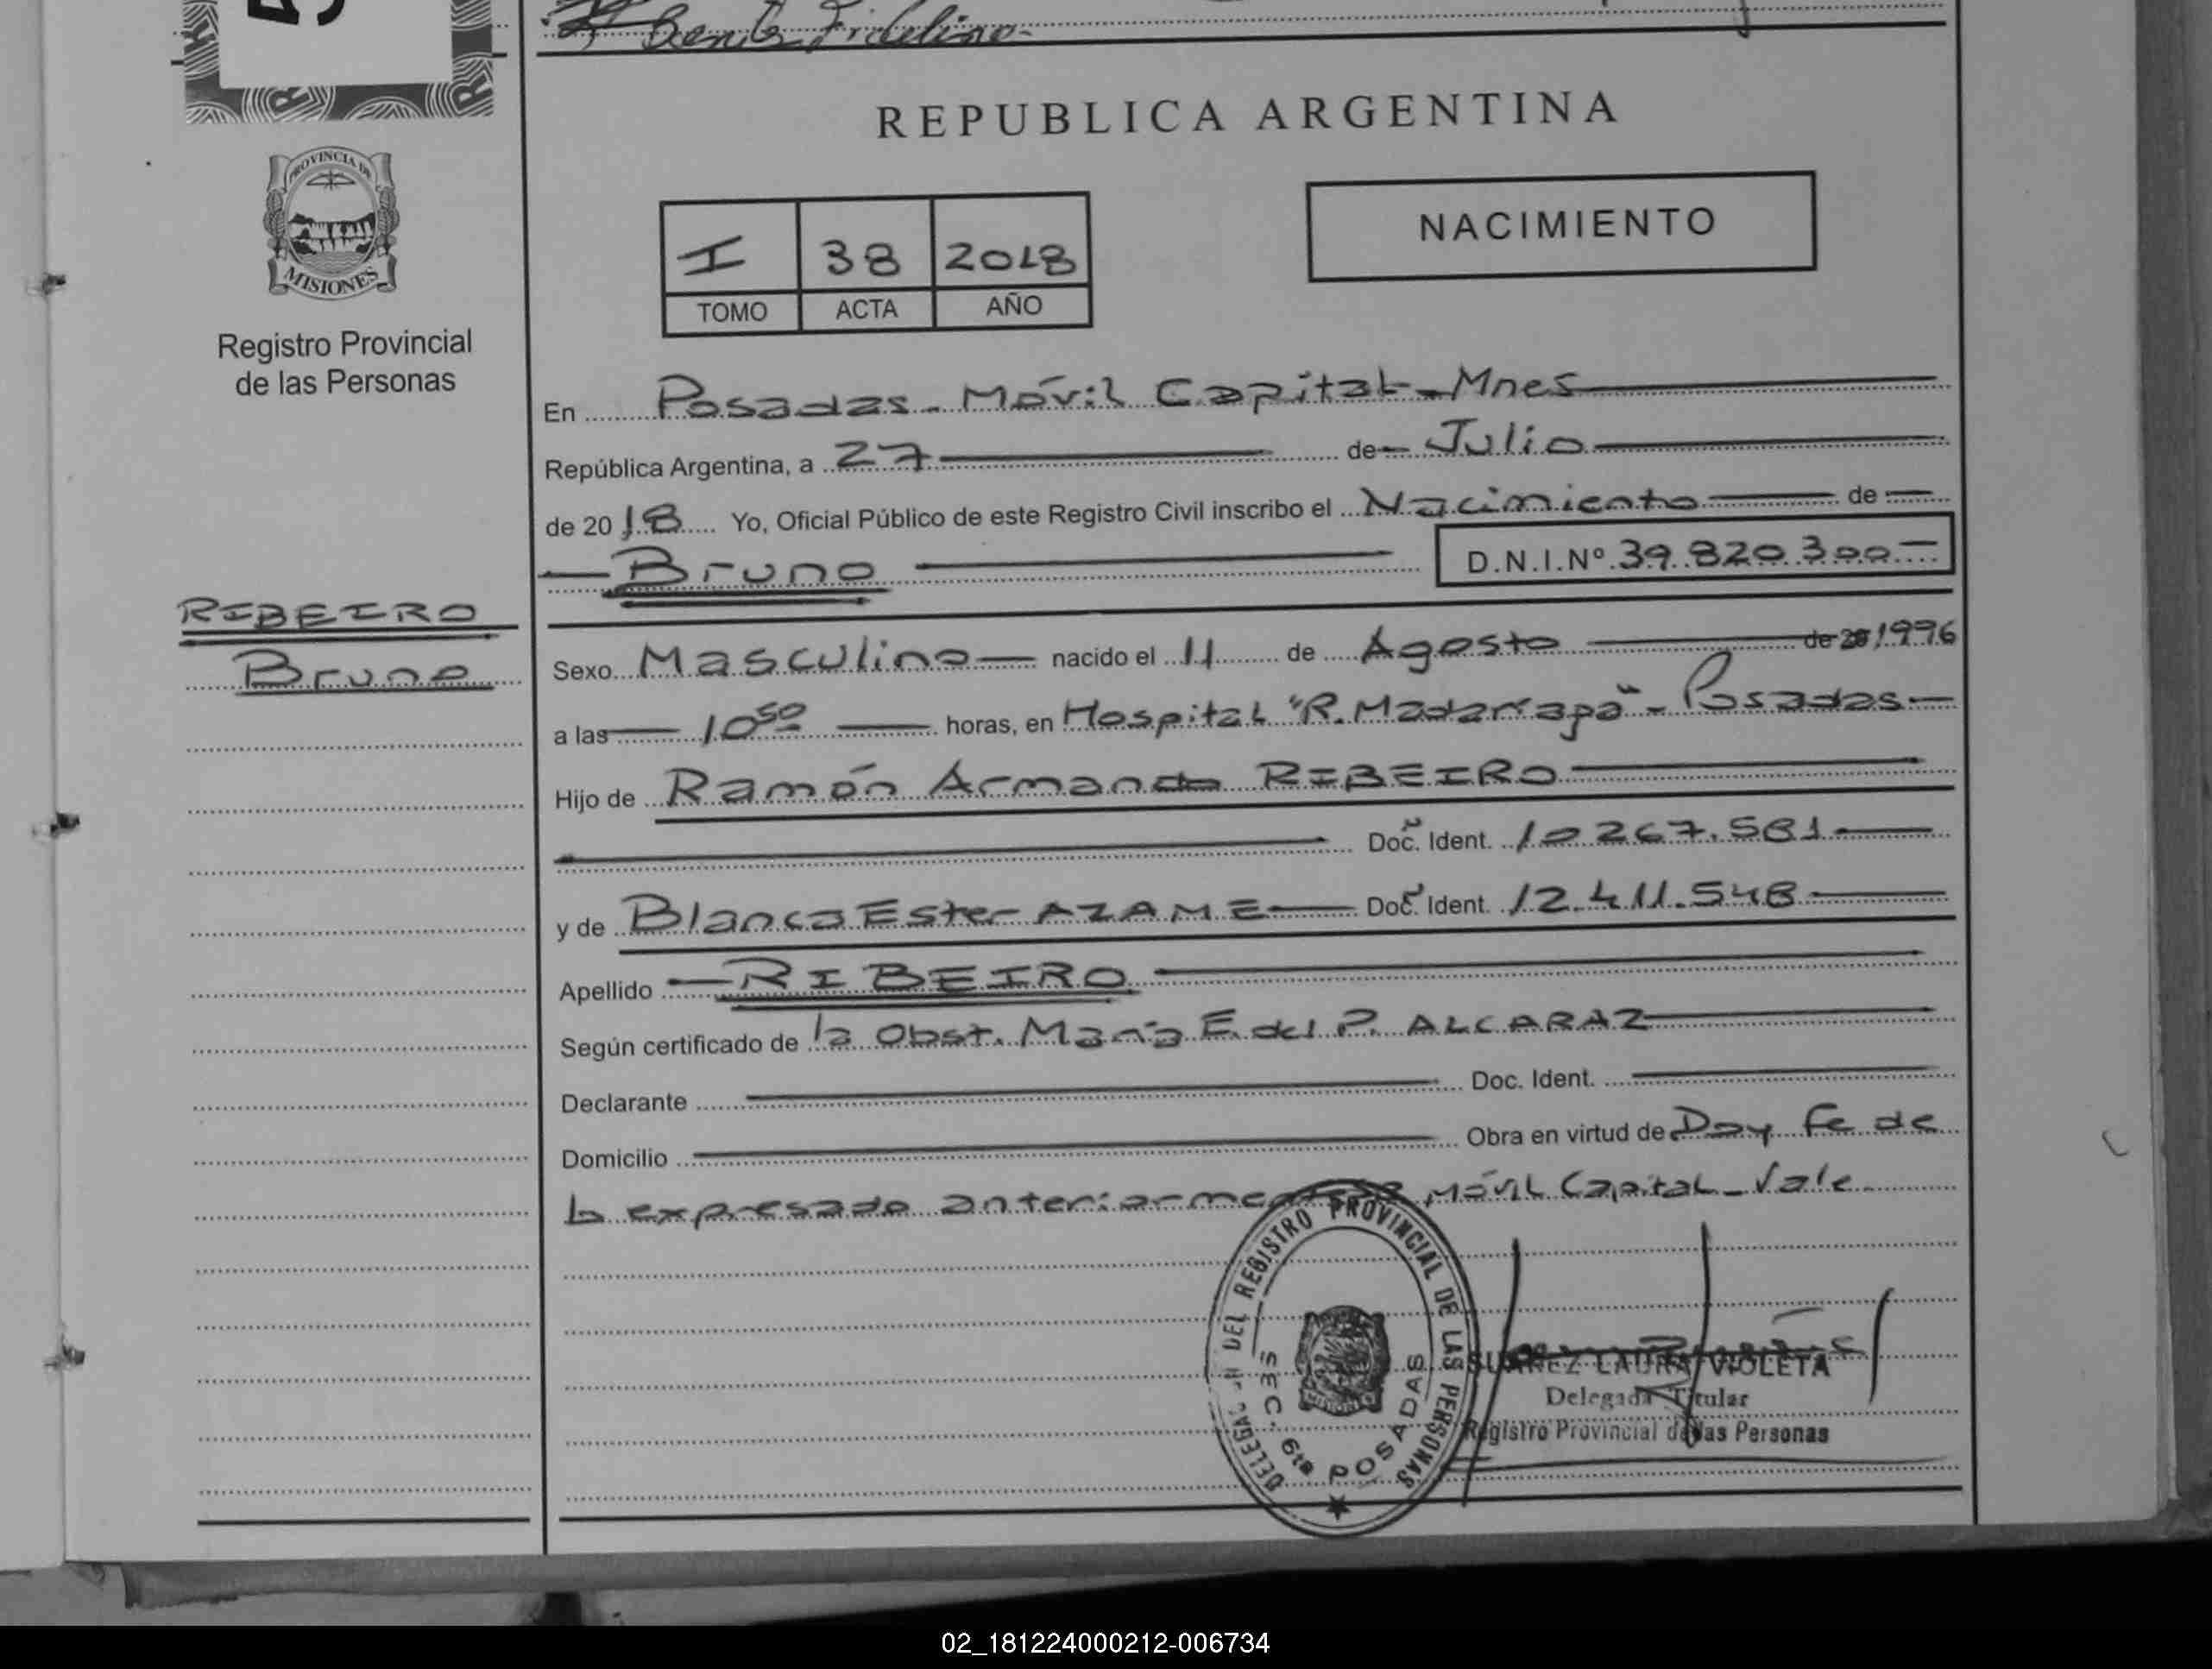 Benito Fidelino.
PROVINCIA DE
MISIONES
Registro Provincial
de las Personas
RIBEIRO
Bruno
REPUBLICA ARGENTINA
I 38 2018
TOMO ACTA AÑO
NACIMIENTO
En Posadas - Móvil Capital - Mnes
República Argentina, a 27 de Julio
de 2018 Yo, Oficial Público de este Registro Civil inscribo el Nacimiento de
Bruno D.N.I.Nº 39.820.300
Sexo Masculino nacido el 11 de Agosto de 20 1996
a las 10 50 horas, en Hospital "R. Madarraga" - Posadas
Hijo de Ramón Armando RIBEIRO
Doc. Ident. 10.267.581
y de Blanca Ester AZAME Doc. Ident. 12.411.548
Apellido RIBEIRO
Según certificado de la Obst. María E. del P. ALCARAZ
Declarante Doc. Ident.
Domicilio Obra en virtud de Doy fe de
lo expresado anteriormente Móvil Capital - Vale
DELEGAC DEL REGISTRO PROVINCIAL DE LAS PERSONAS
SEC. 6ta POSADAS
SUAREZ LAURA VIOLETA
Delegada Titular
Registro Provincial de las Personas
02_181224000212-006734